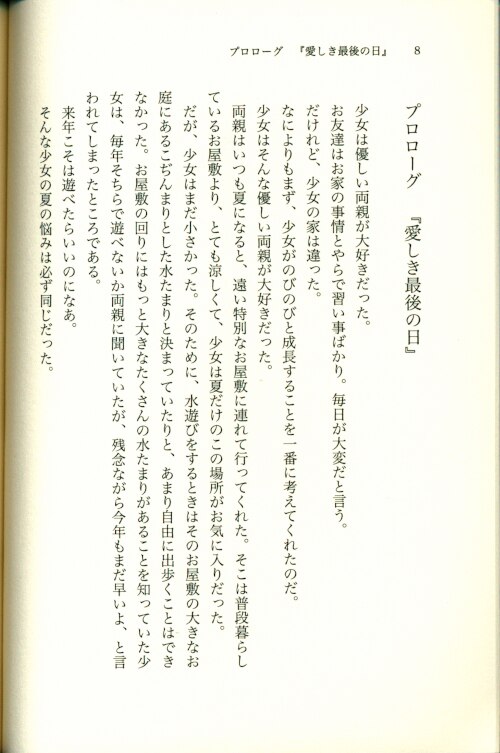 プロローグ 『愛しき最後の日』 8
プロローグ 『愛しき最後の日』
少女は優しい両親が大好きだった。
お友達はお家の事情とやらで習い事ばかり。毎日が大変だと言う。
だけれど、少女の家は違った。
なによりもまず、少女がのびのびと成長することを一番に考えてくれたのだ。
少女はそんな優しい両親が大好きだった。
両親はいつも夏になると、遠い特別なお屋敷に連れて行ってくれた。そこは普段暮らし
ているお屋敷より、とても涼しくて、少女は夏だけのこの場所がお気に入りだった。
だが、少女はまだ小さかった。そのために、水遊びをするときはそのお屋敷の大きなお
庭にあるこぢんまりとした水たまりと決まっていたりと、あまり自由に出歩くことはでき
なかった。お屋敷の回りにはもっと大きなたくさんの水たまりがあることを知っていた少
女は、毎年そちらで遊べないか両親に聞いていたが、残念ながら今年もまだ早いよ、と言
われてしまったところである。
来年こそは遊べたらいいのになあ。
そんな少女の夏の悩みは必ず同じだった。